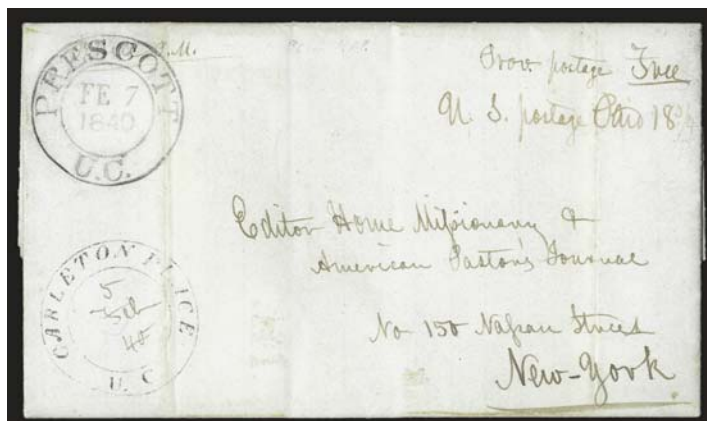 PRESCOTT
FE 7
1840
U.C.
P.M.
Prov. postage Free
U. S. postage Paid 18¾
Editor Home Missionary &
American Pastor's Journal
No 150 Nassau Street
New-York
CARLETON PLACE
5
Feb
40
U C